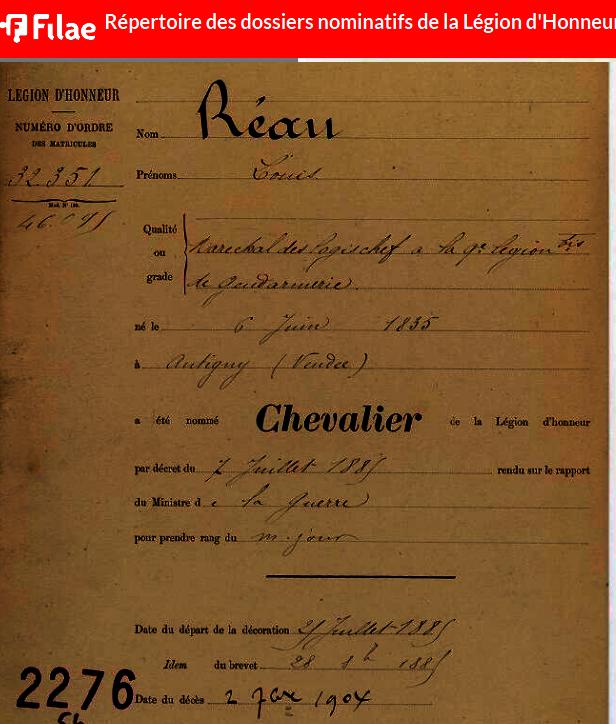 Filae
Répertoire des dossiers nominatifs de la Légion d'Honneu
LEGION D'HONNEUR
NUMÉRO D'ORDRE
DES MATRICULES
32.351
Nom Réau
Prénoms Louis
Qualité ou grade
Marechal des logis chef a la 9e legion bis
de gendarmerie.
né le 6 Juin 1835
à Antigny (Vendee)
a été nommé Chevalier de la Légion d'honneur
par décret du 7 Juillet 1885 rendu sur le rapport
du Ministre de la Guerre
pour prendre rang du m. jour
Date du départ de la décoration Juillet 1885
Idem du brevet 28 1885
Date du décès 2 1904
2276